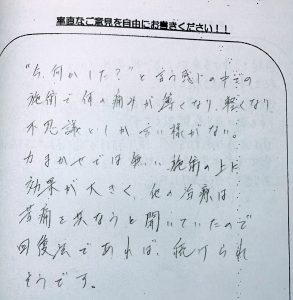 率直なご意見を自由にお書きください!!
"今、何かした?"と言う感じの中での
施術で体の痛みが薄くなり、軽くなり、
不思議としか言い様がない。
力まかせでは無い施術の上に
効果が大きく、他の治療は
苦痛を共なうと聞いていたので
回復法であれば、続けられ
そうです。